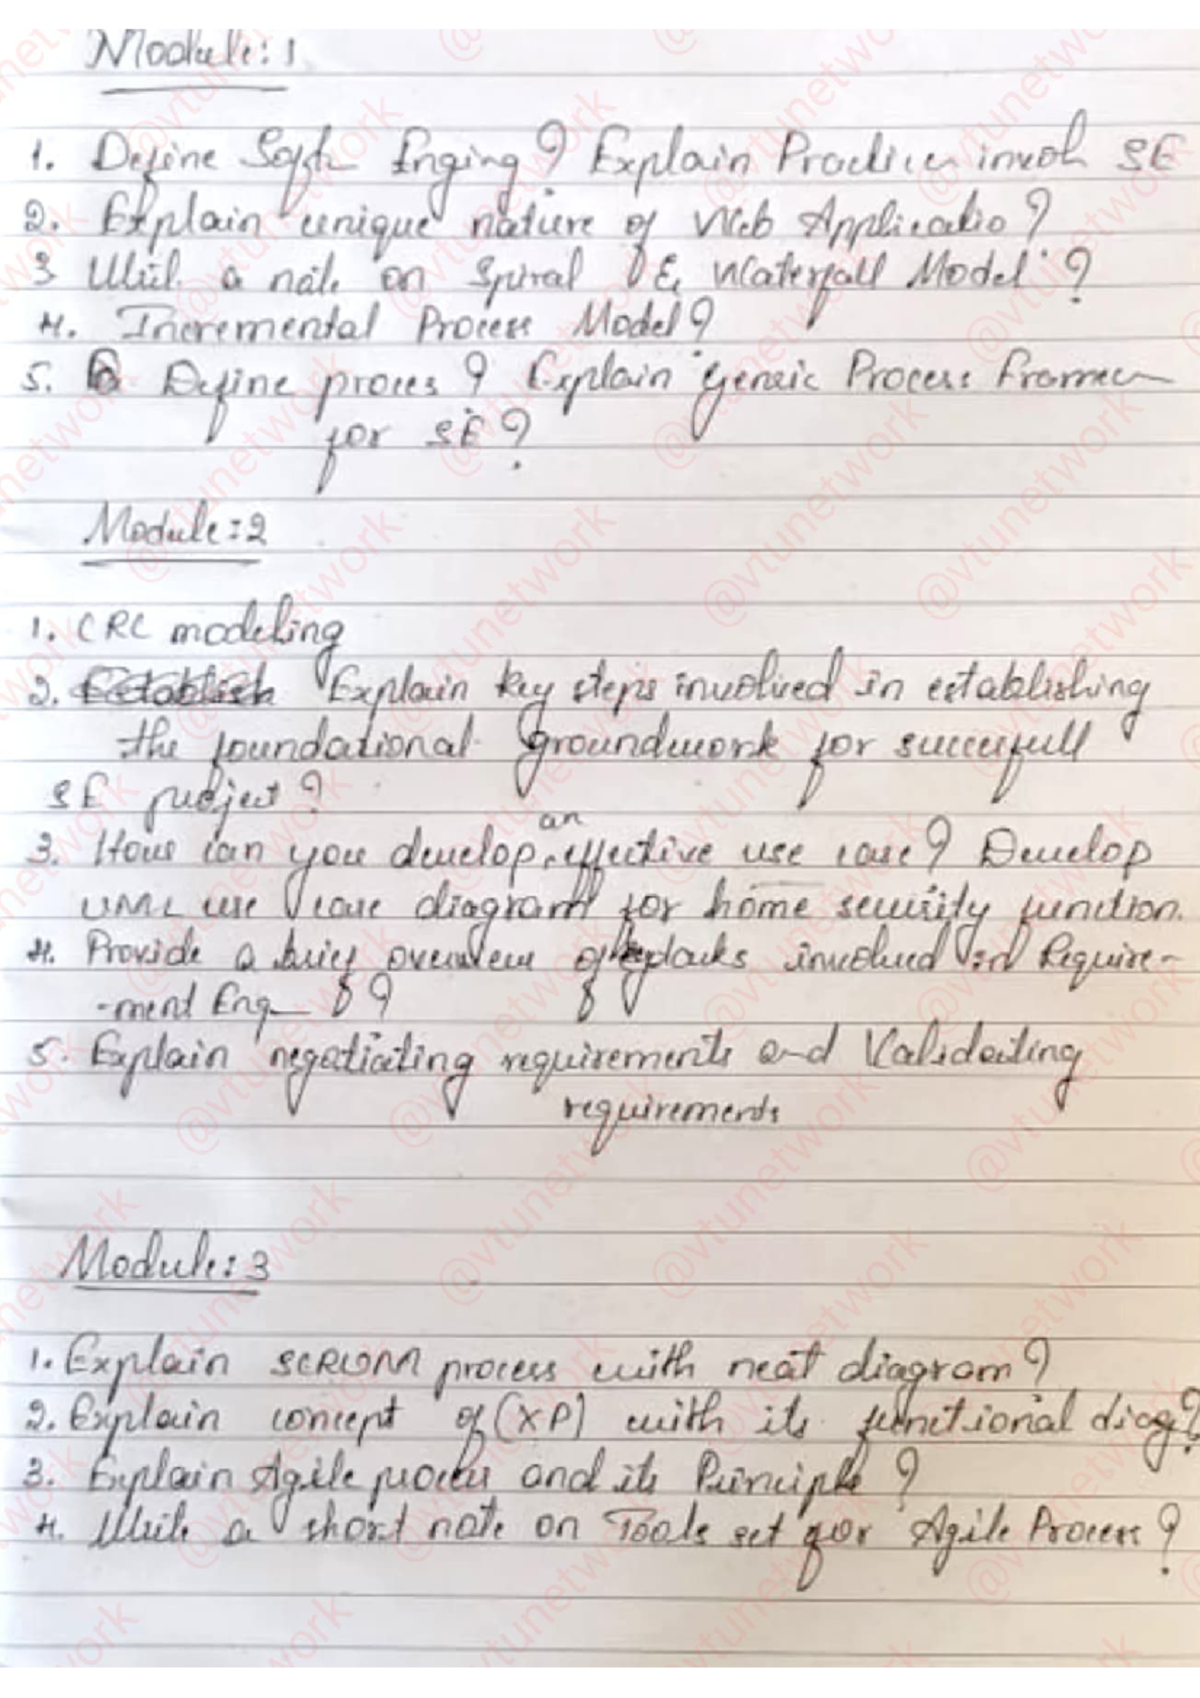 Module: 1
1. Define Soft Enging? Explain Practices involv SE
2. Explain unique nature of Web Applicatio?
3 Write a note on Spiral & Waterfall Model?
4. Incremental Process Model?
5. Define proces? Explain generic Process Framew
for SE?
Module:2
1. CRC modeling
2. Establish Explain key steps involved in establishing
the foundational groundwork for successfull
SE project?
3. How can you develop an effective use case? Develop
UML use case diagram for home security function.
4. Provide a brief overview of involved in Require-
-ment Eng ?
5. Explain negotiating requirements and Validating
requirements
Module: 3
1. Explain SCRUM process with neat diagram?
2. Explain concept of (XP) with its functional diag?
3. Explain Agile process and its Principle?
4. Write a short note on Tools set for Agile Process?
@vtunetwork